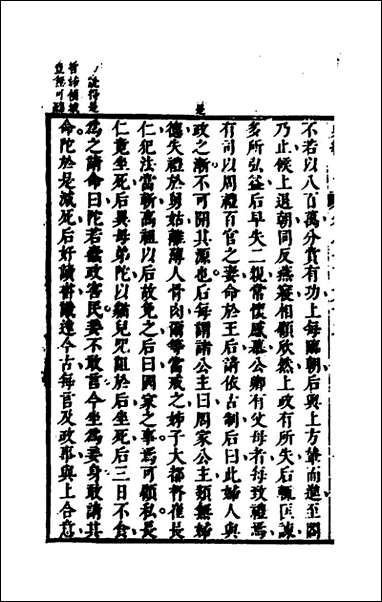 不若以八百萬分賞有功上每臨朝后與上方輦而進至閣
乃止候上退朝同反燕寢相顧欣然上政有所失后輒匡諫
多所弘益后早失二親常懷感慕公卿有父母者每致禮焉
有司以周禮百官之妻命於王后請依古制后曰此婦人與
是
政之漸不可開其源也后每謂諸公主曰周家公主類無婦
德失禮於舅姑離薄人骨肉爾等當戒之姊子大都督崔長
仁犯法當斬高祖以后故免之后曰國家之事焉可顧私長
仁竟坐死后異母弟陀以貓兒咒阻於后坐死后三日不食
說得是
為之請命曰陀若蠹政害民妾不敢言今坐為妾身敢請其
命陀於是減死后好讀書識達今古每言及政事與上合意